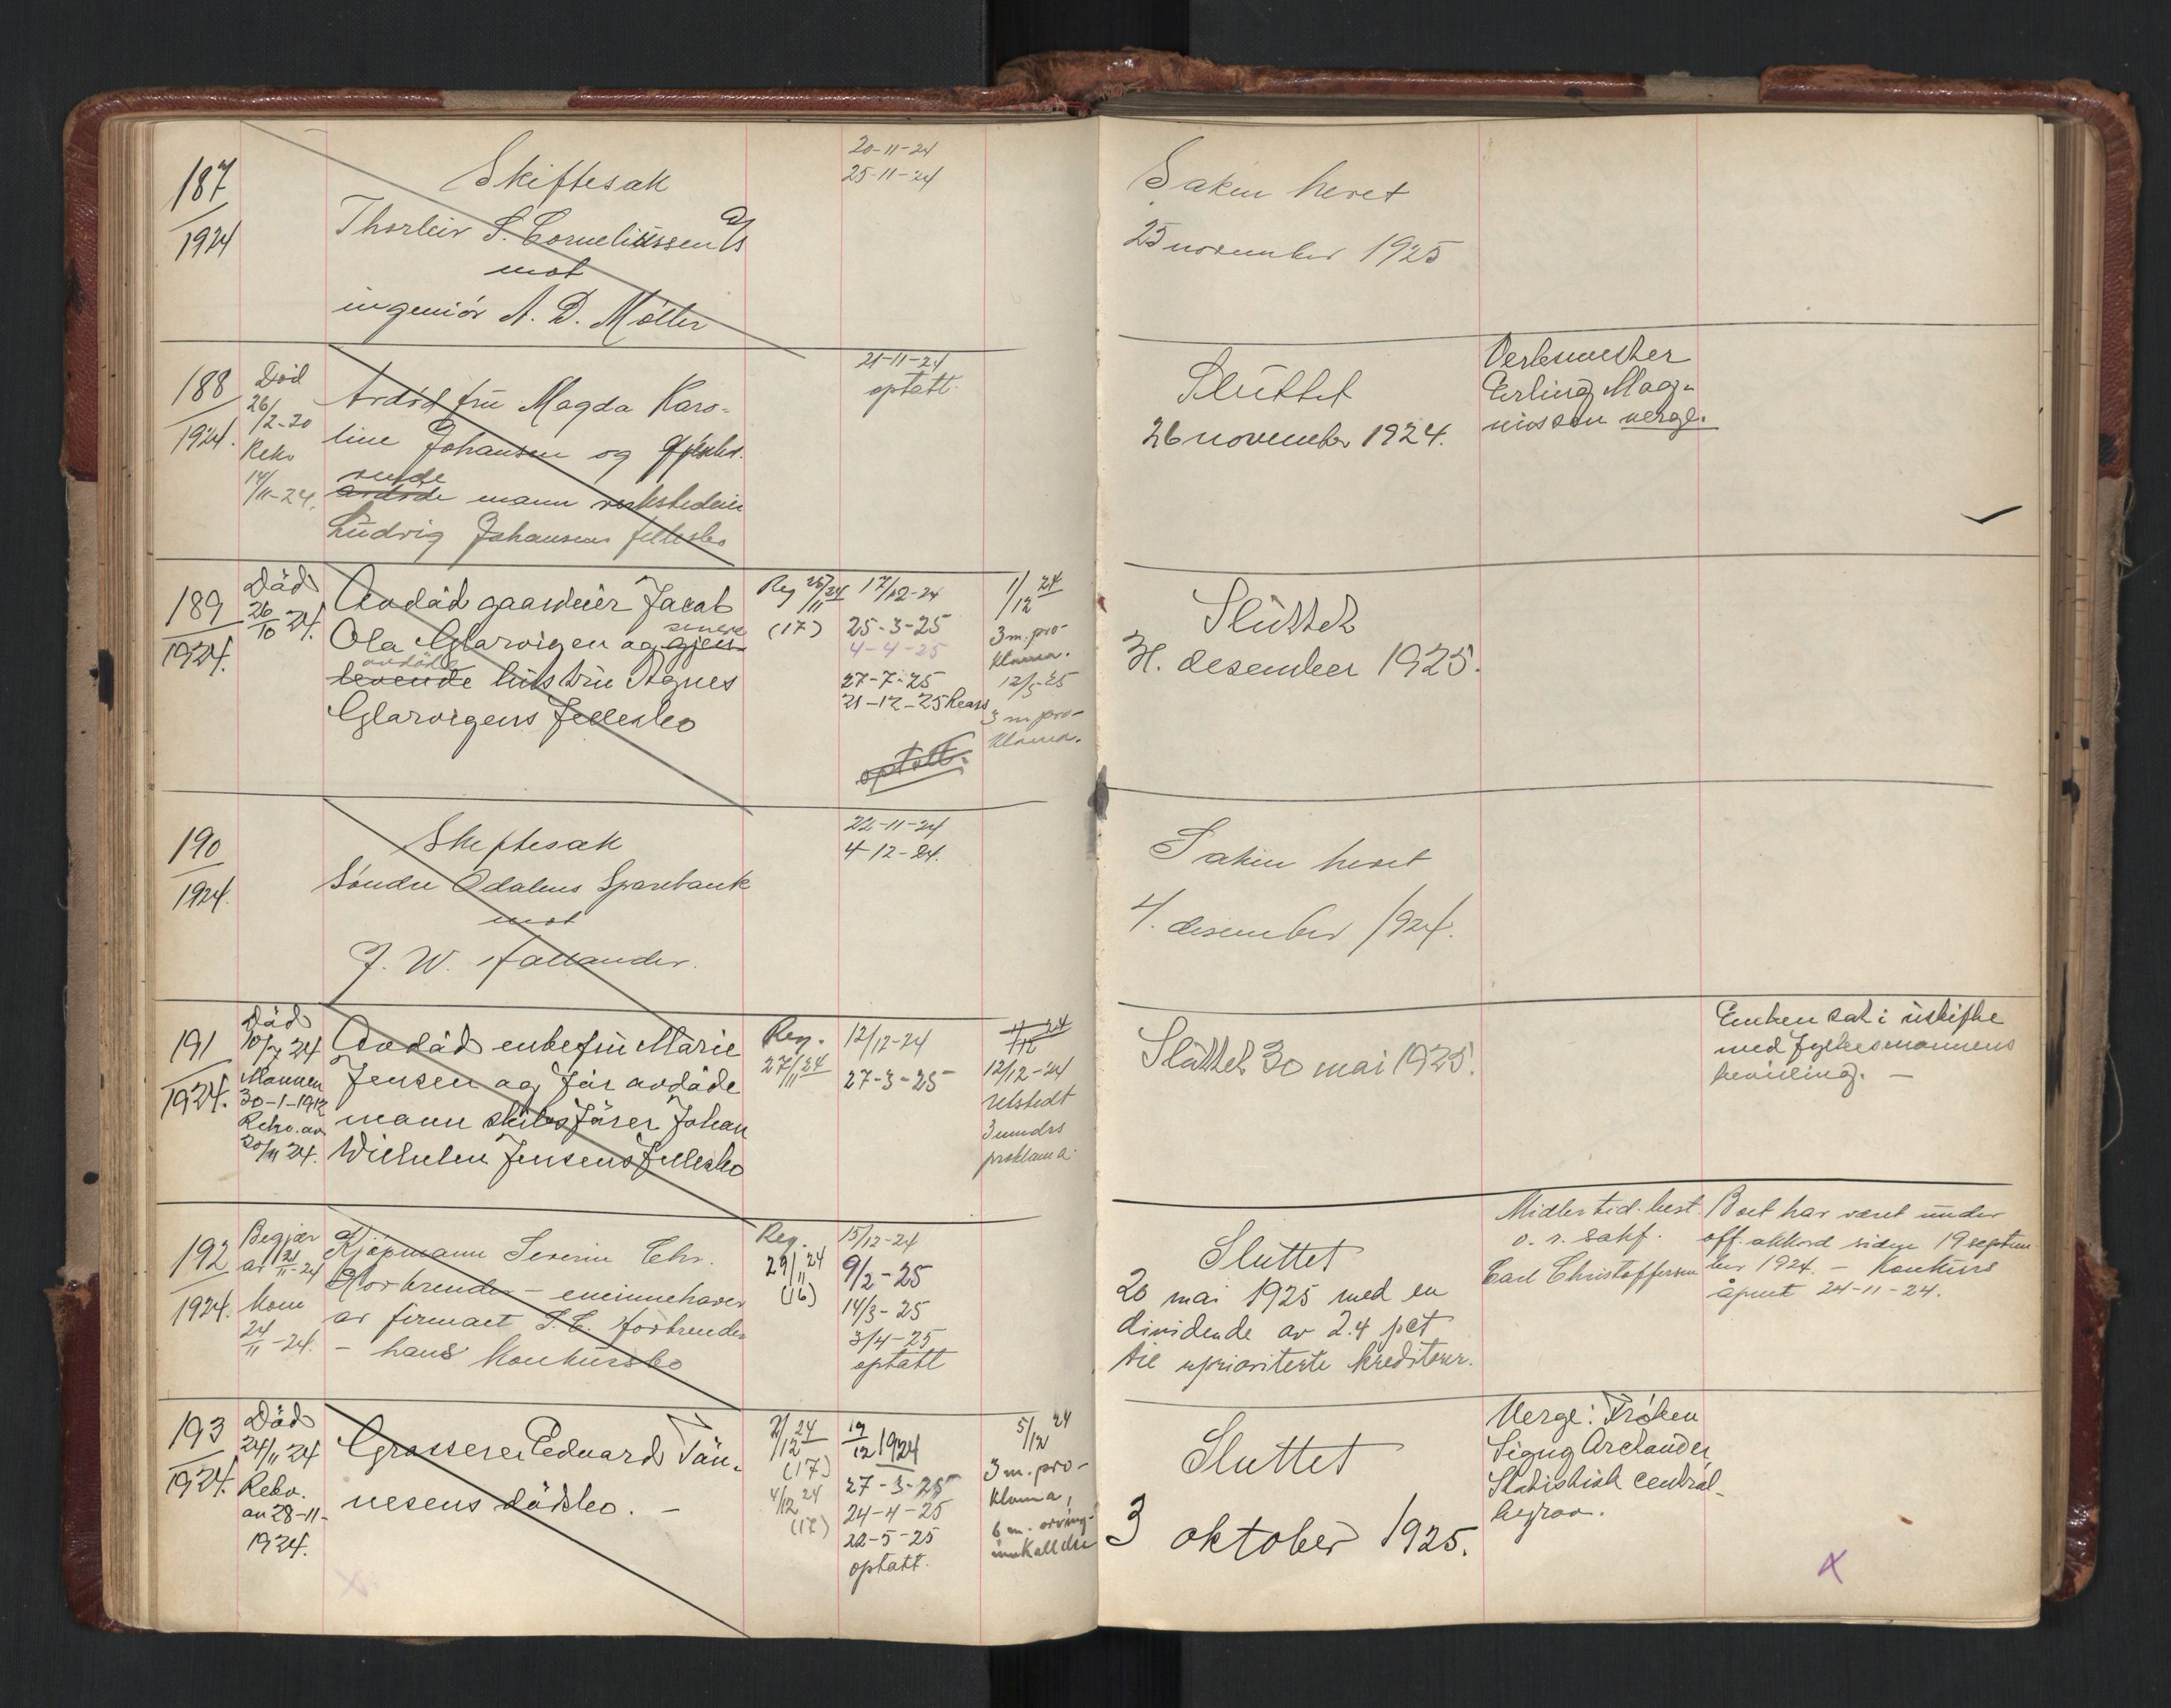 187
1924
Skiftesak
Thorleiv S. Corneliussen A/S
mot
ingeniör A. D. Möller
20-11-24
25-11-24
Saken hevet
25 november 1925
188
1924.
Död
26/2-20
Rekv
14/11-24.
Avdöd fru Magda Karo-
line Johansen og gjenlev.
vende
avdöde mann verkstedeier
Ludvig Johansens fellesbo
21-11-24
optatt.
Sluttet
26 november 1924.
Verkmester
Erling Mag-
nussen verge.
189
1924.
Död
26/10 24.
Avdöd gaardeier Jacob
Ola Glarvigen og gjen-
senere
avdöde
levende hustru Agnes
Glarvigens fellesbo
Reg 25/11 24
(17)
17/12-24
25-3-25
4-4-25
27-7-25
21-12-25
optatt.
1/12 24
3 m. pro-
klama.
12/5-25
3 m pro-
klama.
Sluttet
31. desember 1925.
190
1924.
Skiftesak
Söndre Odalens Sparebank
mot
J. W. Hallander.
22-11-24
4-12-24.
Saken hevet
4. desember 1924.
191
1924.
Död
10/7 24
Mannen
30-1-1912
Rekv. av
20/11 24.
Avdöd enkefru Marie
Jensen og för avdöde
mann skibsförer Johan
Wilhelm Jensens fellesbo
Reg.
27/11 24
12/12-24
27-3-25
12/12-24
utstedt
3 mndrs
proklama.
Sluttet 30 mai 1925.
Enken sat i uskifte
med fylkesmannens
bevilling. —
192
1924.
Begjær
av 21/11-24
Kom
24/11-24.
Kjöpmann Severin Chr.
Horbrender – eneinnehaver
av firmaet S. C. Horbrender
– hans konkursbo
Reg.
29/11 24
(16)
15/12-24
9/2-25
14/3-25
3/4-25
optatt
Sluttet
20 mai 1925 med en
dividende av 2.4 pct
til uprioriterte kreditorer.
Midlertid. best.
o. r. sakf.
Carl Christoffersen
Boet har været under
off. akkord siden 19 septem
ber 1924. – Konkurs
åpnet 24-11-24.
193
1924.
Död
24/11 24
Rekv.
av 28-11-
1924.
Grosserer Edvard Tön-
nesens dödsbo. —
2/12 24
(17)
4/12 24
(17)
19/12 1924
27-3-25
24-4-25
22-5-25
optatt.
5/12 24
3 m. pro-
klama,
6 m. arving-
innkallelse
Sluttet
3 oktober 1925.
Verge: Fröken
Signy Arctander,
Statistisk central-
byraa.